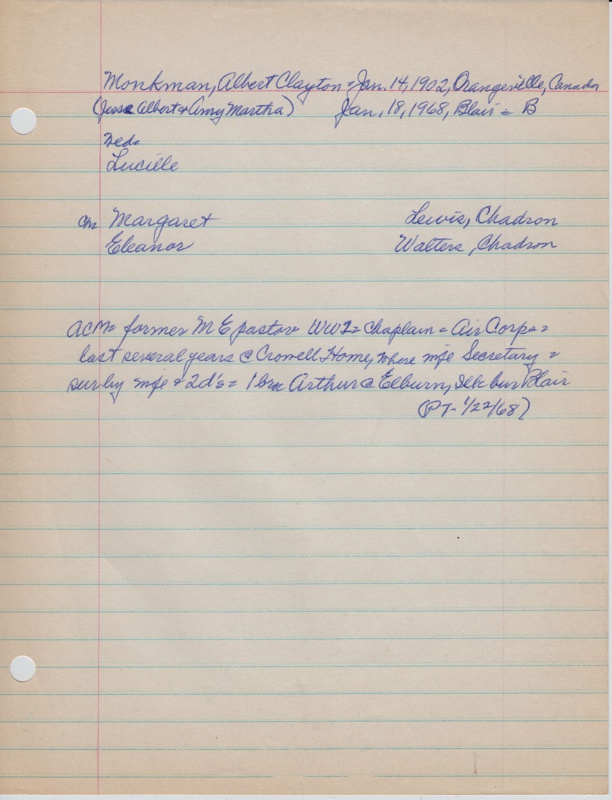 Monkman, Albert Clayton = Jan. 14, 1902, Orangeville, Canada
(Jesse Albert & Amy Martha) Jan. 18, 1968, Blair = B
med=
Lucille
chn Margaret Lewis, Chadron
Eleanor Walters, Chadron
ACM= former M E pastor WW2= Chaplain = Air Corps =
last several years @ Crowell Home, whose wife Secretary =
surby wife & 2d's = 1 bro Arthur @ Elburn, Ill= bur Blair
(PT- 1/22/68)